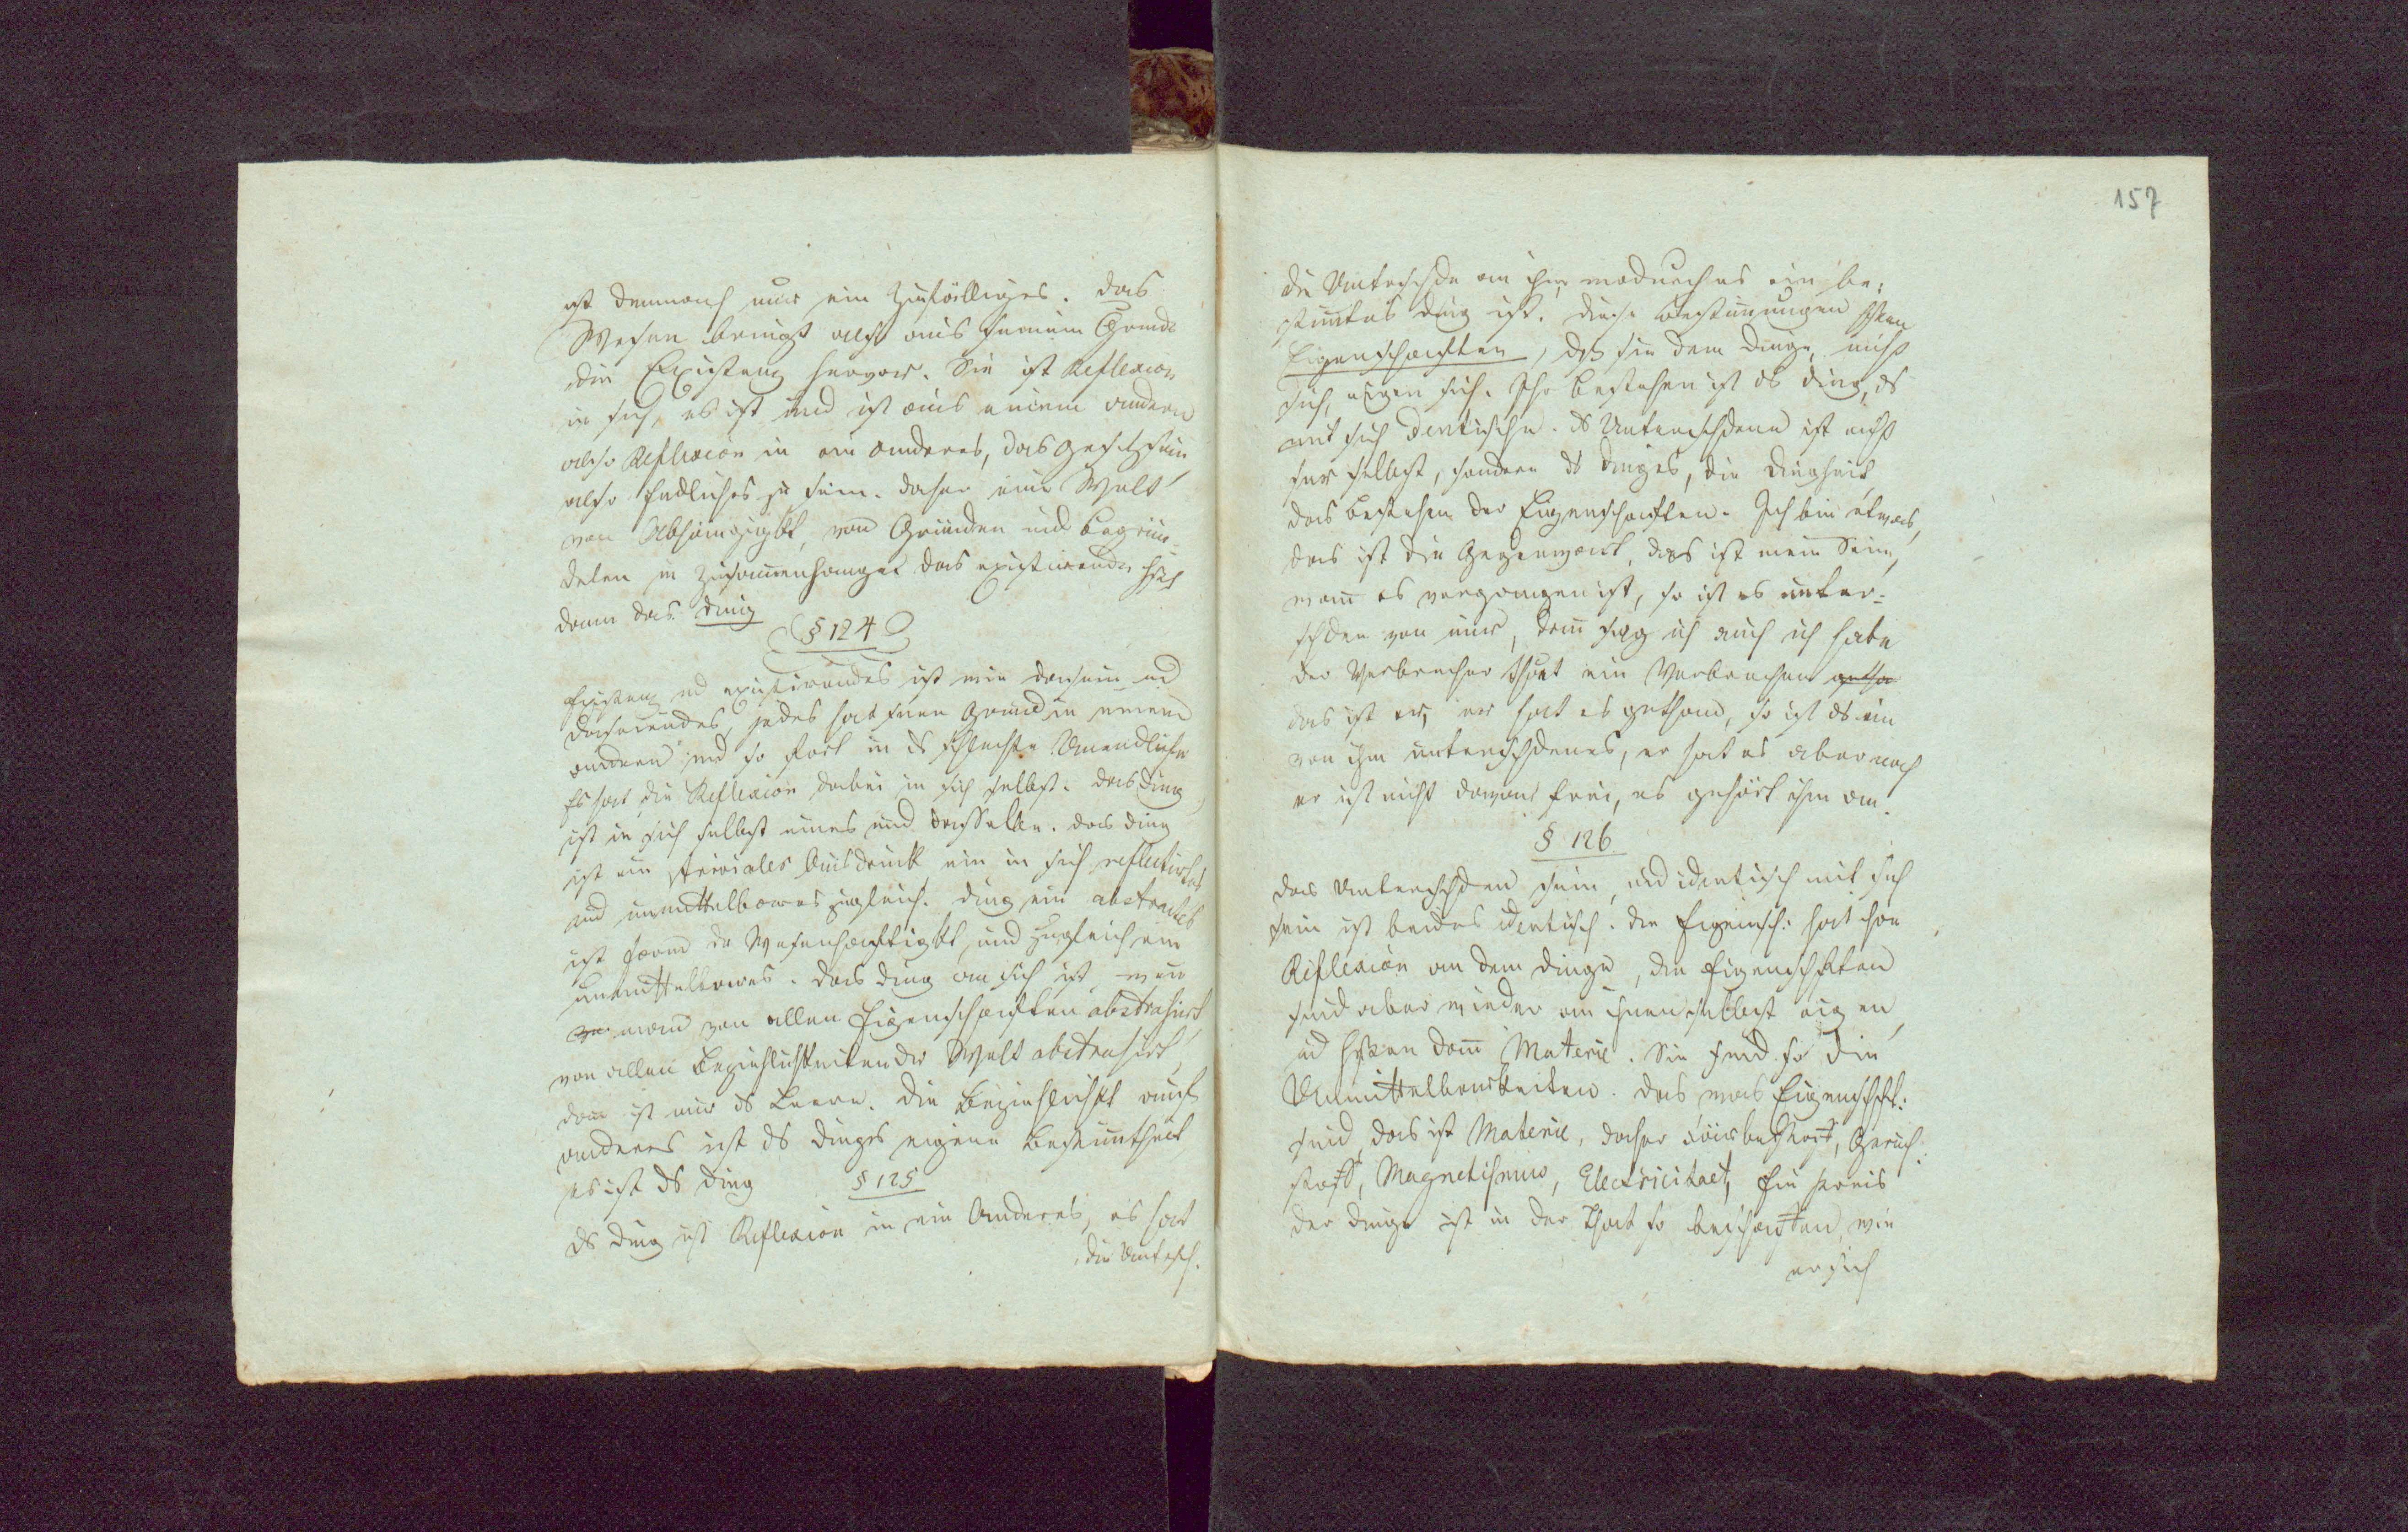 ist demnach nur ein Zufälliges. Das
Wesen bringt also aus seinem Grunde
die Existenz hervor. Sie ist Reflexion
in sich, es ist und ist aus einem andern
also Reflexion in ein anderes, das Gesetzsein
also Endliches zu sein. Daher eine Welt
von Abhängigkt, von Gründen und Begrün-
deten in Zusammenhange das existirende
dann das Ding
§ 124
Existenz ud existirendes ist wie Dasein ud
Daseiendes, jedes hat seinen Grund in einem
andern und so fort in ds schlechte Unendliche
Es hat die Reflexion dabei in sich selbst. Das Ding
ist in sich selbst eines und dasselbe. Das Ding
ist ein trivialer Ausdruck ein in sich reflectirtes
und unmittelbares zugleich. Ding ein abstractes
ist Form der Wesenhaftigkt und zugleich ein
Unmittelbares. Das Ding an sich ist wenn
man von allen Eigenschaften abstrahirt
von allen Beziehlichkeiten der Welt abstrahirt,
dann ist nur ds Leere. Die Beziehlichkt auf
anderes ist ds Dinges eigene Bestimmtheit
es ist ds Ding
§ 125
Ds Ding ist Reflexion in ein Anderes, es hat
die Untersch.
157
die Unterschde an ihm, wodurch es ein be-
stimmtes Ding ist. Diese Bestimungen
Eigenschaften, dß sie dem Dinge, nicht
sich, eigen sind. Ihr Bestehen ist ds Ding, ds
mit sich identische. Ds Unterschdene ist nicht
selbst, sondern ds Dinges, die Dingheit
das Bestehen der Eigenschaften. Ich bin etwas,
das ist die Gegenwart, das ist mein Sein,
wenn es vergangen ist, so ist es unter-
schden von mir, dann sag ich auch ich habe
der Verbrecher thut ein Verbrechen getha
das ist er, er hat es gethan, so ist ds ein
von ihm unterschdenes, er hat es aber noch
er ist nicht davon frei, es gehört ihm an.
§ 126
Das Unterschden sein, ud identisch mit sich
sein ist beides identisch. Die Eigensch: hat ihre
Reflexion an dem Dinge, die Eigenschften
sind aber wieder an ihnen selbst eigen,
ud dann Materie. Sie sind so die
Unmittelbarkeiten. Das was Eigenschft:
sind, das ist Materie, daher Färbestoff, Geruch-
stoff, Magnetismus, Electricitaet, Ein Kreis
der Dinge ist in der That so beschaffen, wie
er sich